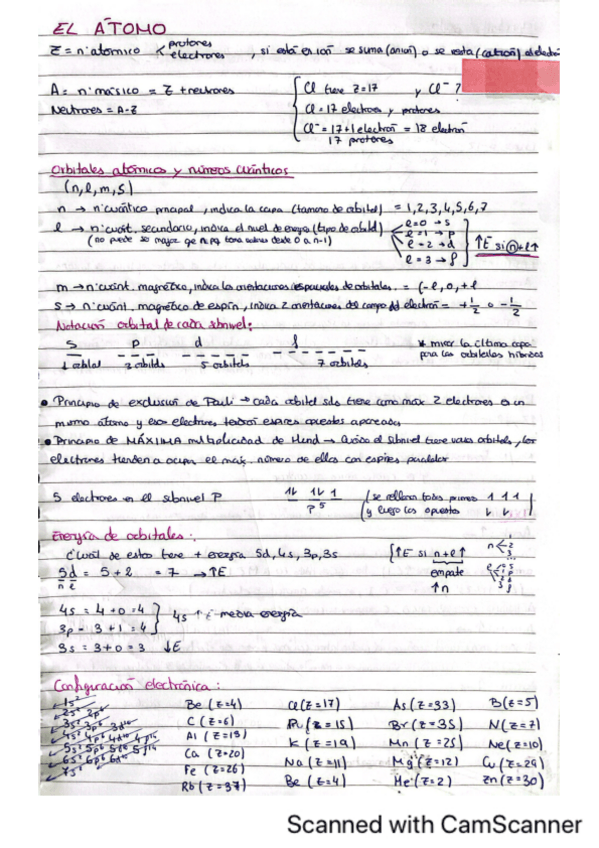 EL ÁTOMO
Z = nº atómico < protones electrones, si está en ión se suma (anión) o se resta (catión) el electrón
A = nº másico = Z + neutrones
Neutrones = A-Z
Cl tiene Z=17 y Cl⁻ ?
Cl = 17 electrones y protones
Cl⁻ = 17+1 electrón = 18 electrón
17 protones
Orbitales atómicos y números cuánticos
(n, l, m, s)
n → nº cuántico principal, indica la capa (tamaño de orbital) = 1,2,3,4,5,6,7
l → nº cuánt. secundario, indica el nivel de energía (tipo de orbital)
(no puede ser mayor que n, pq toma valores desde 0 a n-1)
l=0 → s
l=1 → p
l=2 → d
l=3 → f
↑E si (n)+l↑
m → nº cuánt. magnético, indica las orientaciones espaciales de orbitales. = (-l, 0, +l
s → nº cuánt. magnético de espín, indica 2 orientaciones del campo del electrón = +1/2 o -1/2
Notación orbital de cada subnivel:
s p d f
1 orbital 3 orbitales 5 orbitales 7 orbitales
* mirar la última capa para los orbitales híbridos
• Principio de exclusión de Pauli → cada orbital solo tiene como máx 2 electrones en un
mismo átomo y esos electrones tendrán espines opuestos apareados
• Principio de MÁXIMA multiplicidad de Hund → Cuando el subnivel tiene varios orbitales, los
electrones tienden a ocupar el máx. número de ellos con espines paralelos
5 electrones en el subnivel P 1↓ 1↓ 1
p⁵
(se rellenan todos primero 1 1 1
y luego los opuestos ↓ ↓
Energía de orbitales:
Cuál de estos tiene + energía 5d, 4s, 3p, 3s
{↑E si n+l↑
empate
↑n
5d = 5+2 = 7 → ↑E
n l
4s = 4+0 = 4
3p = 3+1 = 4
4s ↑E media energía
3s = 3+0 = 3 ↓E
Configuración electrónica:
1s²
2s² 2p⁶
3s² 3p⁶ 3d¹⁰
4s² 4p⁶ 4d¹⁰ 4f¹⁴
5s² 5p⁶ 5d¹⁰ 5f¹⁴
6s² 6p⁶ 6d¹⁰
7s²
Be (Z=4) Cl (Z=17) As (Z=33) B (Z=5)
C (Z=6) (Z=15) Br (Z=35) N (Z=7)
Al (Z=13) K (Z=19) Mn (Z=25) Ne (Z=10)
Ca (Z=20) Na (Z=11) Mg (Z=12) Cu (Z=29)
Fe (Z=26) Be (Z=4) He (Z=2) Zn (Z=30)
Rb (Z=37)
Scanned with CamScanner